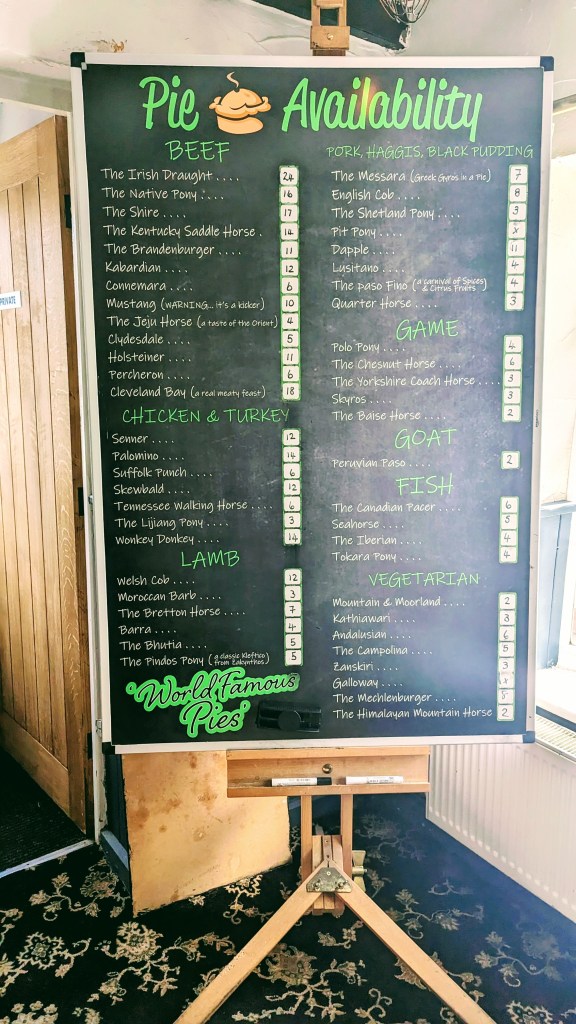 Pie Availability
BEEF
The Irish Draught .... 24
The Native Pony .... 16
The Shire .... 17
The Kentucky Saddle Horse . 14
The Brandenburger .... 11
Kabardian .... 12
Connemara .... 6
Mustang (WARNING... it's a kicker) 10
The Jeju Horse (a taste of the Orient) 4
Clydesdale .... 5
Holsteiner .... 11
Percheron .... 6
Cleveland Bay (a real meaty feast) 18
CHICKEN & TURKEY
Senner .... 12
Palomino .... 14
Suffolk Punch .... 6
Skewbald .... 12
Tennessee Walking Horse .... 6
The Lijiang Pony .... 3
Wonkey Donkey .... 14
LAMB
Welsh Cob .... 12
Moroccan Barb .... 3
The Bretton Horse .... 7
Barra .... 4
The Bhutia .... 5
The Pindos Pony (a classic Kleftico from Zakynthos) 5
"World Famous
Pies"
PORK, HAGGIS, BLACK PUDDING
The Messara (Greek Gyros in a Pie) 7
English Cob .... 8
The Shetland Pony .... 3
Pit Pony .... x
Dapple .... 11
Lusitano .... 4
The paso Fino (a carnival of Spices & Citrus Fruits) 4
Quarter Horse .... 3
GAME
Polo Pony .... 4
The Chesnut Horse .... 6
The Yorkshire Coach Horse .... 3
Skyros .... 3
The Baise Horse .... 2
GOAT
Peruvian Paso .... 2
FISH
The Canadian Pacer .... 6
Seahorse .... 5
The Iberian .... 4
Tokara Pony .... 4
VEGETARIAN
Mountain & Moorland .... 2
Kathiawari .... 3
Andalusian .... 6
The Campolina .... 5
Zanskiri .... 3
Galloway .... x
The Mechlenburger ....
The Himalayan Mountain Horse 2
PRIVATE